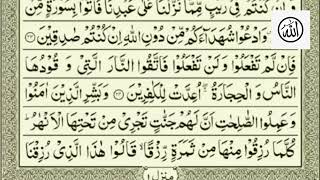 وَ اِنْ كُنْتُمْ فِيْ رَيْبٍ مِّمَّا نَزَّلْنَا عَلٰى عَبْدِنَا فَاْتُوْا بِسُوْرَةٍ مِّنْ
وَادْعُوْا شُهَدَآءَكُمْ مِّنْ دُوْنِ اللّٰهِ اِنْ كُنْتُمْ صٰدِقِيْنَ ﴿۲۳﴾
فَاِنْ لَّمْ تَفْعَلُوْا وَلَنْ تَفْعَلُوْا فَاتَّقُوا النَّارَ الَّتِيْ وَقُوْدُهَا
النَّاسُ وَ الْحِجَارَةُ ۖ اُعِدَّتْ لِلْكٰفِرِيْنَ ﴿۲۴﴾ وَبَشِّرِ الَّذِيْنَ اٰمَنُوْا
وَعَمِلُوا الصّٰلِحٰتِ اَنَّ لَهُمْ جَنّٰتٍ تَجْرِيْ مِنْ تَحْتِهَا الْاَنْهٰرُ ؕ
كُلَّمَا رُزِقُوْا مِنْهَا مِنْ ثَمَرَةٍ رِّزْقًا ۙ قَالُوْا هٰذَا الَّذِيْ رُزِقْنَا
منزل ۱
الله